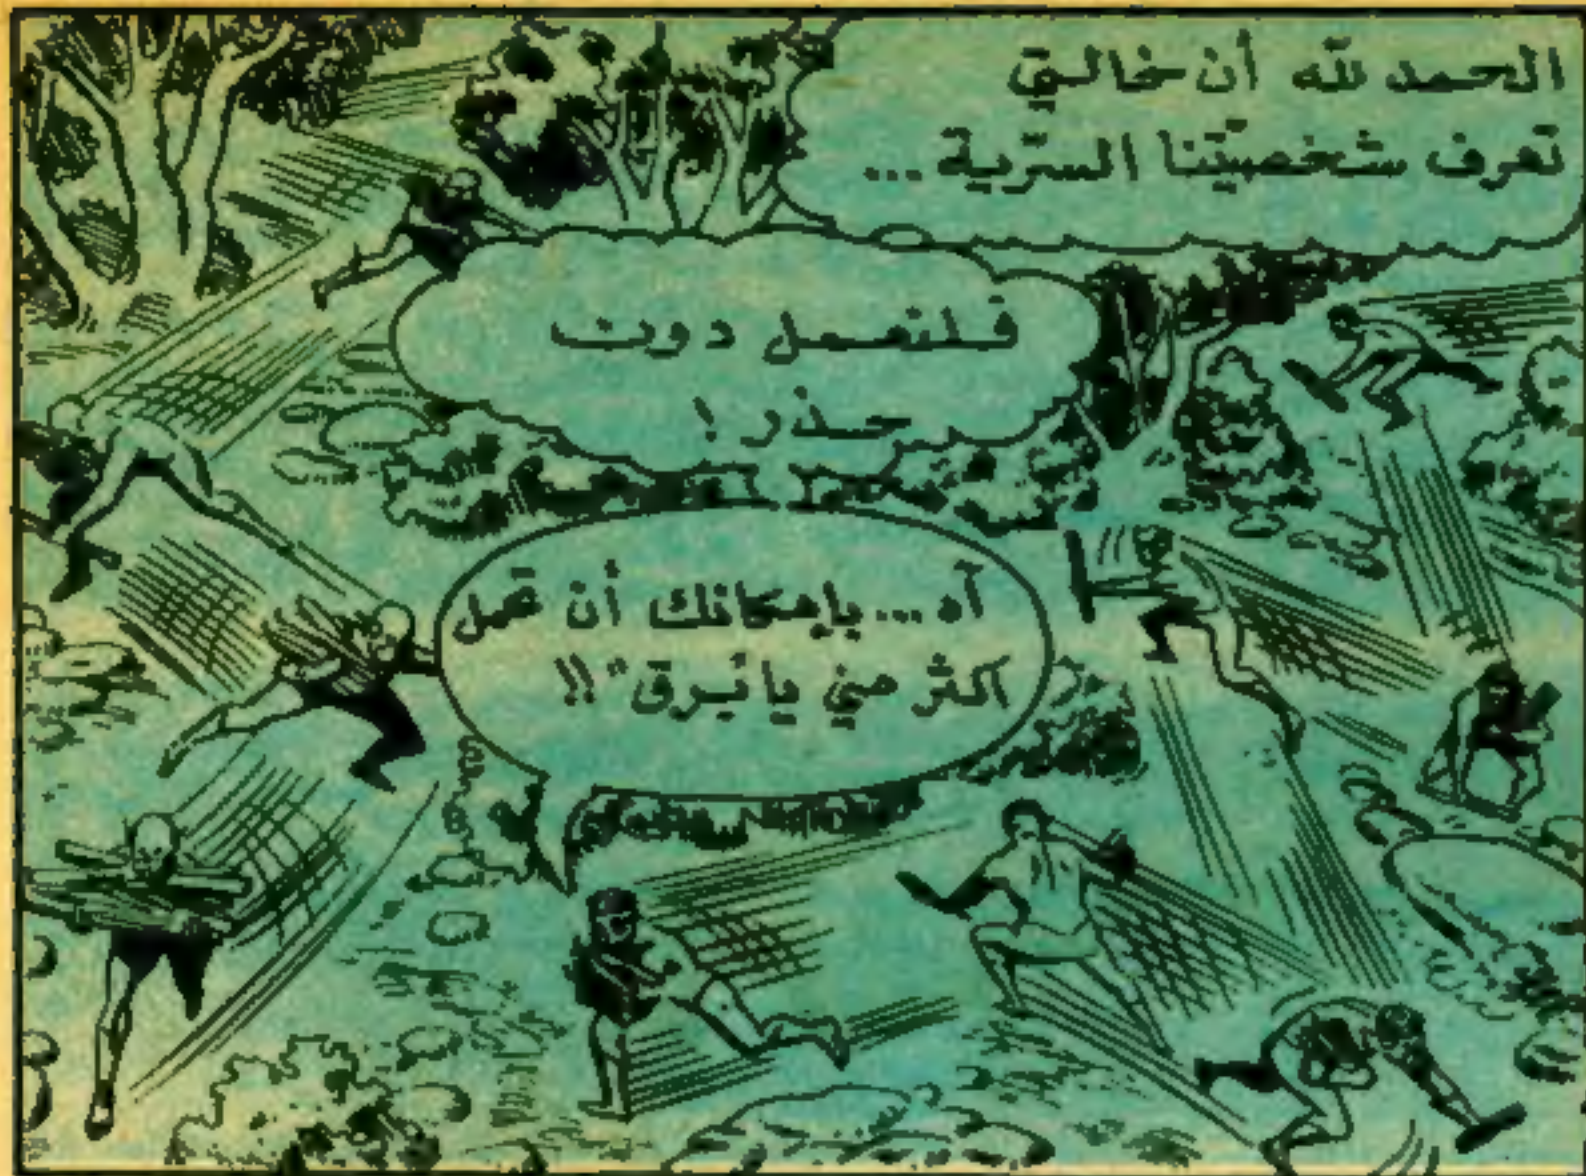 الحمد لله أن خالتي
تعرف شخصيّتنا السرّية ...
فلنعمل دون
حذر !
آه ... بإمكانك أن تحمل
أكثر مني يا "برق" !!